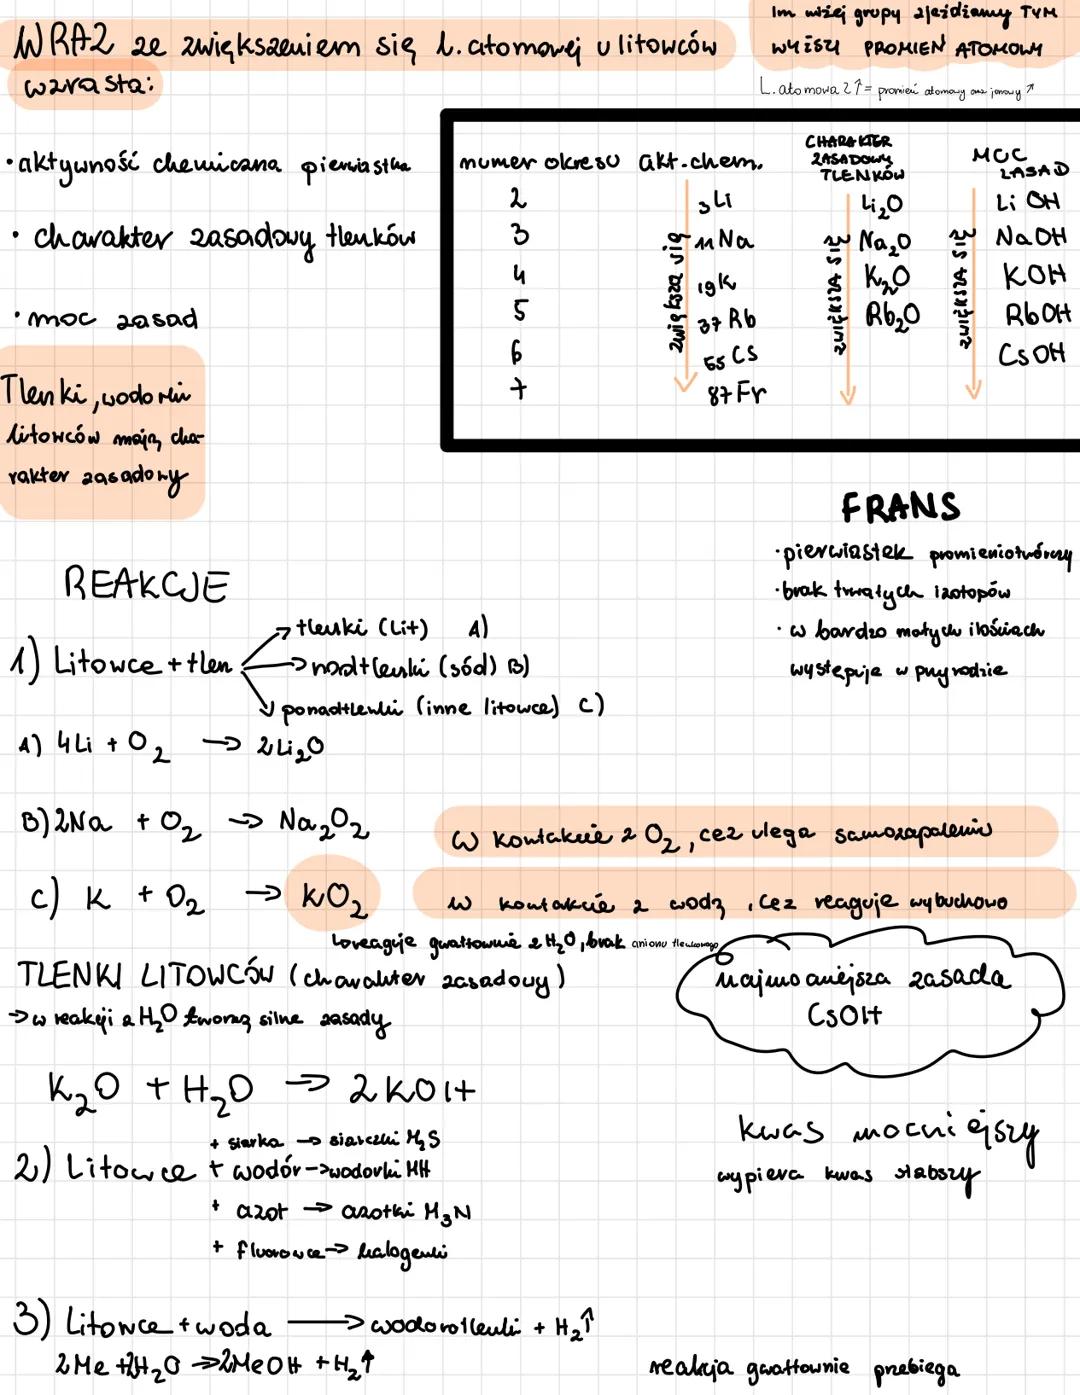 Im niżej grupy zjeżdżamy TYM
WYŻSZY PROMIEŃ ATOMOWY
L. atomowa Z ↑ = promień atomowy oraz jonowy ↗
WRAZ ze zwiększeniem się l. atomowej u litowców
wzrasta:
• aktywność chemiczna pierwiastka
• charakter zasadowy tlenków
• moc zasad
Tlenki, wodorki
litowców mają cha-
rakter zasadowy
numer okresu akt. chem. CHARAKTER ZASADOWY TLENKÓW MOC ZASAD
zwiększa się
ZWIĘKSZA SIĘ
ZWIĘKSZA SIĘ
2 ₃Li Li₂O LiOH
3 ₁₁Na Na₂O NaOH
4 ₁₉K K₂O KOH
5 ₃₇Rb Rb₂O RbOH
6 ₅₅Cs CsOH
7 ₈₇Fr
FRANS
• pierwiastek promieniotwórczy
• brak trwałych izotopów
• w bardzo małych ilościach
występuje w przyrodzie
REAKCJE
1) Litowce + tlen
→ tlenki (Lit) A)
→ nadtlenki (sód) B)
→ ponadtlenki (inne litowce) C)
A) 4Li + O₂ → 2Li₂O
B) 2Na + O₂ → Na₂O₂
W kontakcie z O₂, cez ulega samozapaleniu
C) K + O₂ → KO₂
w kontakcie z wodą, cez reaguje wybuchowo
↳ reaguje gwałtownie z H₂O, brak anionu tlenkowego
TLENKI LITOWCÓW (charakter zasadowy)
→ w reakcji z H₂O tworzą silne zasady
najmocniejsza zasada
CsOH
K₂O + H₂O → 2KOH
kwas mocniejszy
wypiera kwas słabszy
2) Litowce
+ siarka → siarczki M₂S
+ wodór → wodorki MH
+ azot → azotki M₃N
+ fluorowce → halogenki
3) Litowce + woda → wodorotlenki + H₂↑
2Me + 2H₂O → 2MeOH + H₂↑
reakcja gwałtownie przebiega